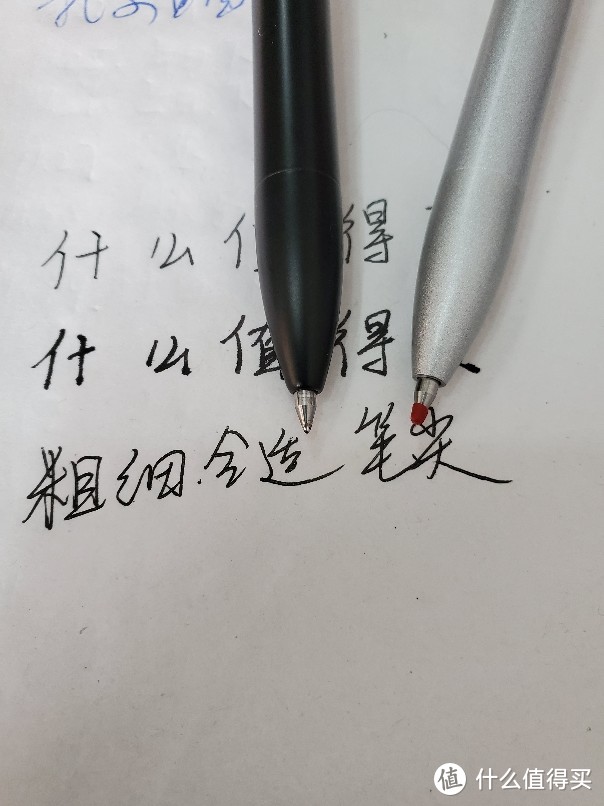 什么 得
什么值得
粗细合适笔尖
值 什么值得买